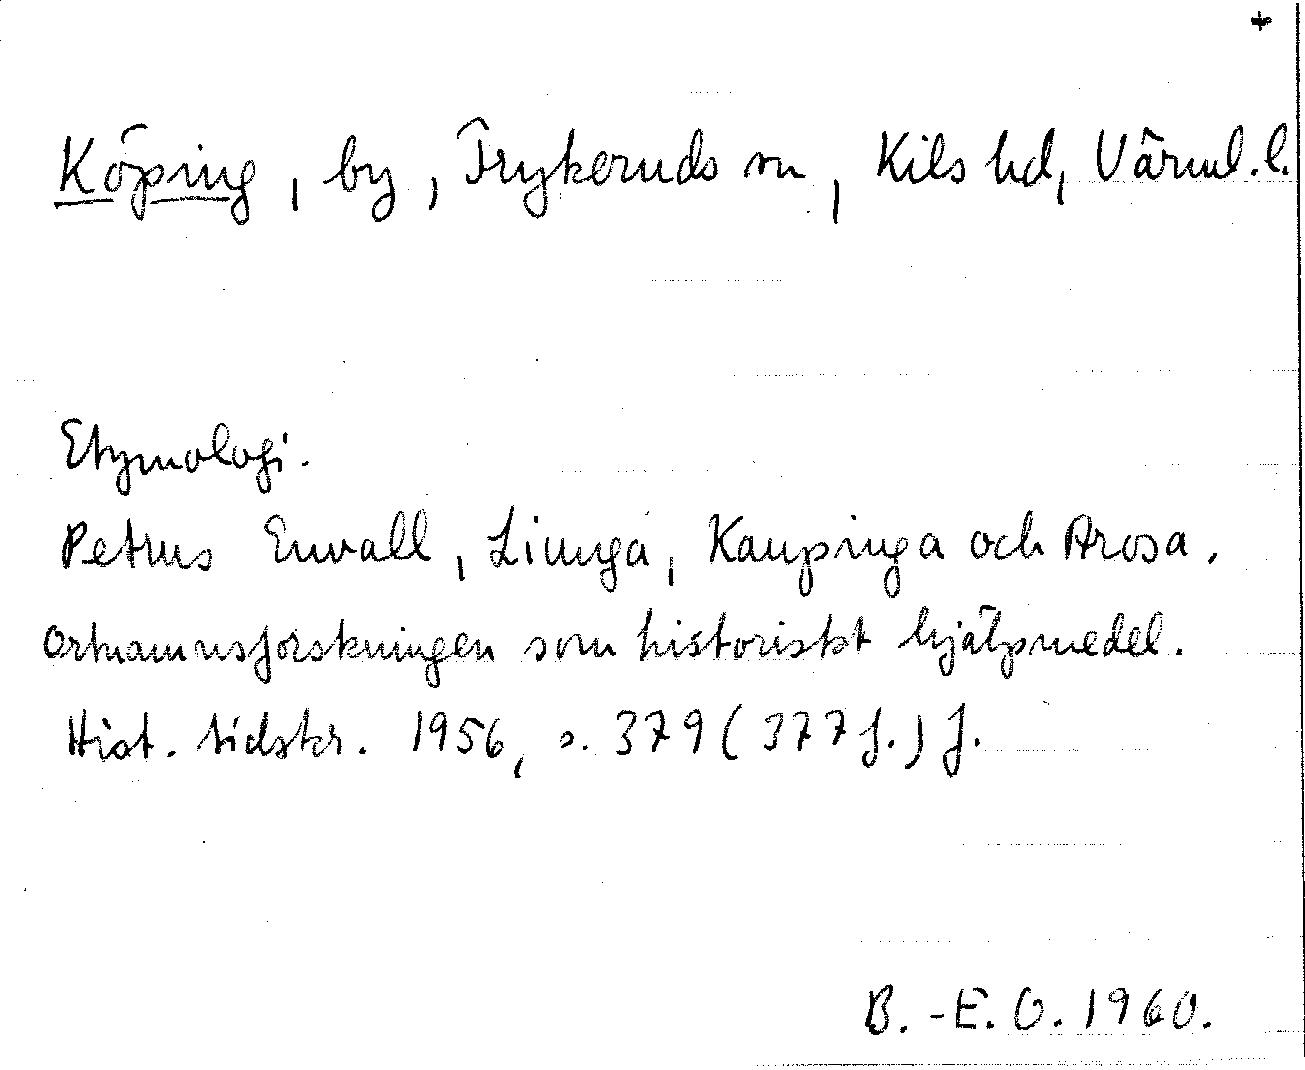 +
Köping, by, Frykeruds sn, Kils hd, Värml. l.
Etymologi.
Petrus Envall, Liunga, Kaupinga och Arosa.
Ortnamnsforskningen som historiskt hjälpmedel.
Hist. tidskr. 1956, s. 379 (377 f.) f.
B.-E. O. 1960.